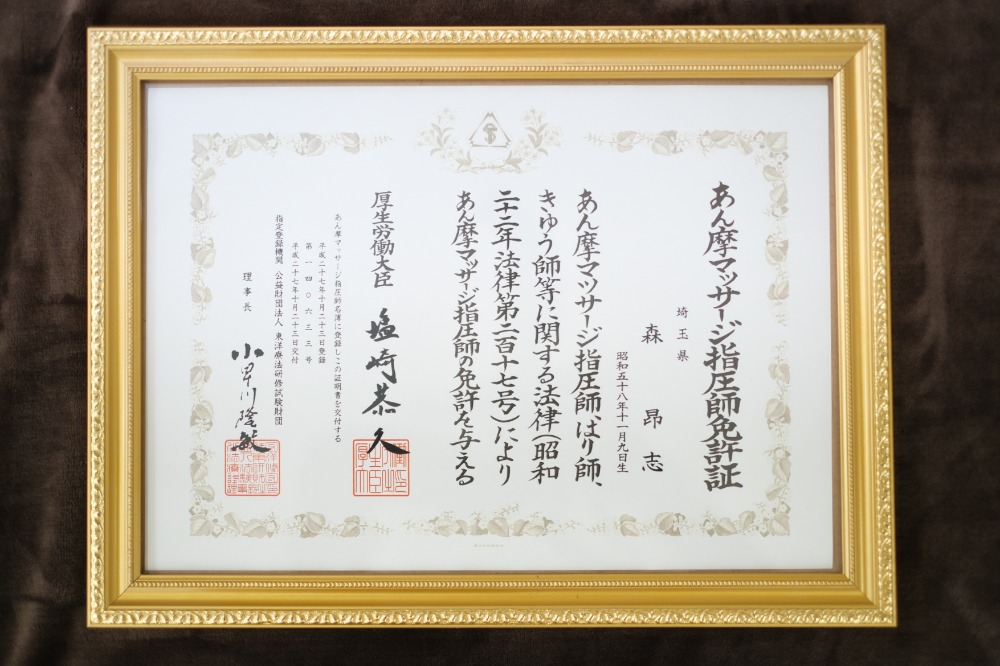 あん摩マッサージ指圧師免許証
埼玉県
森昂志
昭和五十八年十一月九日生
あん摩マッサージ指圧師、はり師、
きゆう師等に関する法律(昭和
二十二年法律第二百十七号)により
あん摩マッサージ指圧師の免許を与える
厚生労働大臣 塩崎恭久
あん摩マッサージ指圧師名簿に登録しこの証明書を交付する
平成二十七年十月二十三日登録
第一四〇六三三号
平成二十七年十月二十三日交付
指定登録機関 公益財団法人 東洋療法研修試験財団
理事長 小早川隆敏